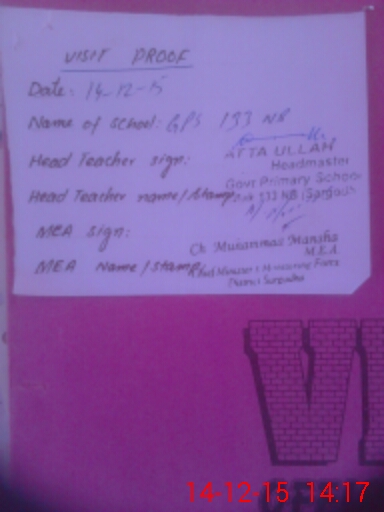 VISIT PROOF
Date: 14-12-15
Name of school: GPS 133 NB
Head Teacher sign:
ATTA ULLAH
Headmaster
Govt Primary School
Head Teacher name/stamp 133 NB (Sargodha
MEA sign:
Ch Muhammad Mansha
M.E.A.
MEA Name/stamp Chief Minister's Monitoring Force
District Sargodha
VI
14-12-15 14:17